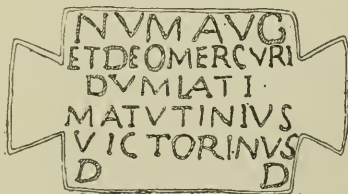 NVM AVG
ET DEO MERCVRI
DVMIATI
MATVTINIVS
VICTORINVS
D D